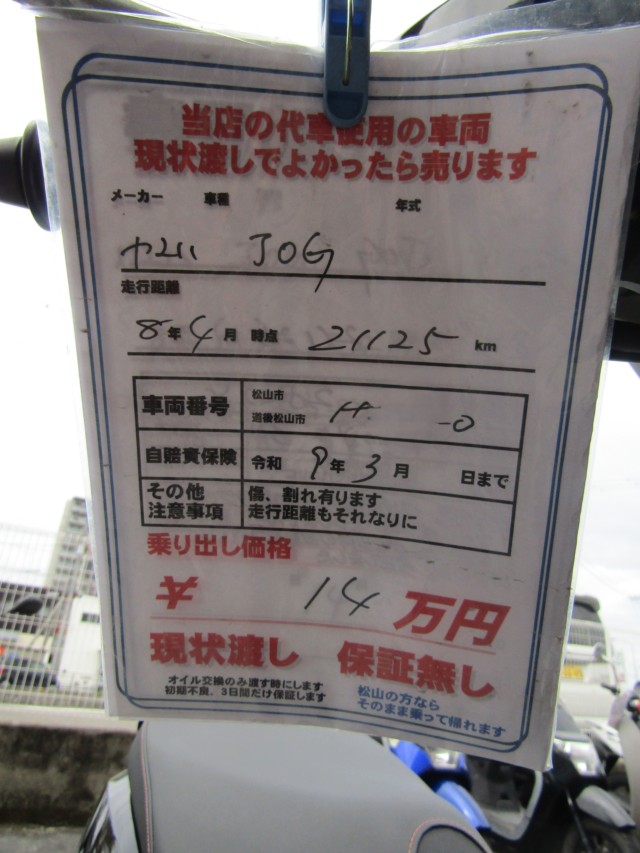 当店の代車使用の車両
現状渡しでよかったら売ります
メーカー 車種 年式
ヤマハ JOG
走行距離
8年4月 時点 21125 km
車両番号 松山市
道後松山市
自賠責保険 令和 9年3月 日まで
その他 傷、割れ有ります
注意事項 走行距離もそれなりに
乗り出し価格
¥ 14 万円
現状渡し 保証無し
オイル交換のみ渡す時にします
初期不良、3日間だけ保証します
松山の方なら
そのまま乗って帰れます